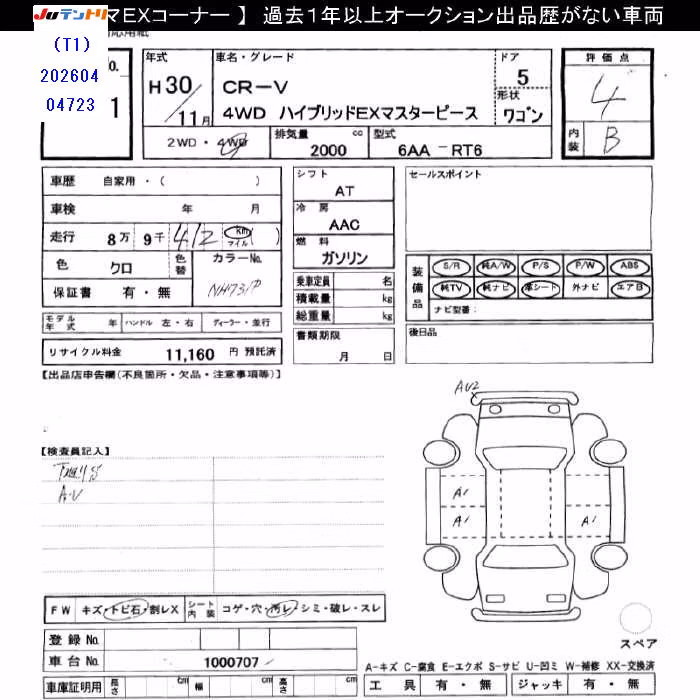 JUテントリ マEXコーナー 】 過去１年以上オークション出品歴がない車両
(T1)
202604
04723
No.
1
年式
H30/11月
車名・グレード
CR-V
4WD ハイブリッドEXマスターピース
ドア
5
形状
ワゴン
評価点
4
内装
B
2WD・4WD
排気量
2000 cc
型式
6AA - RT6
車歴 自家用・( )
車検 年 月
走行 8万 9千 412 km マイル ( )
色 クロ
色替
カラーNo.
NH731P
保証書 有・無
モデル年式 年 ハンドル 左・右 ディーラー・並行
リサイクル料金 11,160 円 預託済
シフト
AT
冷房
AAC
燃料
ガソリン
乗車定員 名
積載量 kg
総重量 kg
書類期限
月 日
セールスポイント
装備品
S/R 純A/W P/S P/W ABS
純TV 純ナビ 革シート 外ナビ エアB
ナビ型番:
後日品
【出品店申告欄(不良箇所・欠品・注意事項等)】
【検査員記入】
下廻りS
A・U
AU2
A1
A1
A1
FW キズ・トビ石・割レX
シート内装 コゲ・穴・汚レ・シミ・破レ・スレ
登録No.
車台No. 1000707
車庫証明用 長さ cm 幅 cm 高さ cm
スペア
A-キズ C-腐食 E-エクボ S-サビ U-凹ミ W-補修 XX-交換済
工具 有・無 ジャッキ 有・無